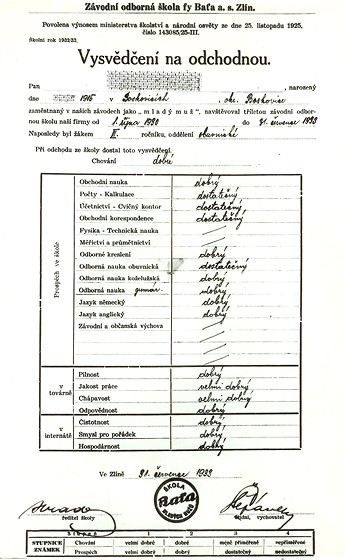 Závodní odborná škola fy Baťa a. s. Zlín.
Povolena výnosem ministerstva školství a národní osvěty ze dne 25. listopadu 1925,
číslo 143085/25-III.
Školní rok 1932/33.
Vysvědčení na odchodnou.
Pan , narozený
dne 1916 v Boskovicích , okr. Boskovice
zaměstnaný v našich závodech jako „mladý muž“, navštěvoval tříletou závodní odbor-
nou školu naší firmy od 1. října 1930 do 31. července 1933
Naposledy byl žákem III. ročníku, oddělení obuvnické
Při odchodu ze školy dostal toto vysvědčení.
Chování dobré
Prospěch ve škole
Obchodní nauka dobrý
Počty - Kalkulace dostatečný
Účetnictví - Cvičný kontor dostatečný
Obchodní korespondence dostatečný
Fysika - Technická nauka
Měřictví a průmětnictví
Odborné kreslení dobrý
Odborná nauka obuvnická dostatečný
Odborná nauka koželužská dobrý
Odborná nauka gumár. dobrý
Jazyk německý dobrý
Jazyk anglický dobrý
Závodní a občanská výchova
v továrně
Pilnost dobrý
Jakost práce velmi dobrý
Chápavost velmi dobrý
Odpovědnost dobrý
v internátě
Čistotnost dobrý
Smysl pro pořádek dobrý
Hospodárnost dobrý
Ve Zlíně 31. července 1933
ŠKOLA
Baťa
ředitel školy
třídní, vychovatel
STUPNICE ZNÁMEK
Stupně 2 3 4
Chování velmi dobré dobré méně přiměřené nepřiměřené
Prospěch velmi dobrý dobrý dostatečný nedostatečný